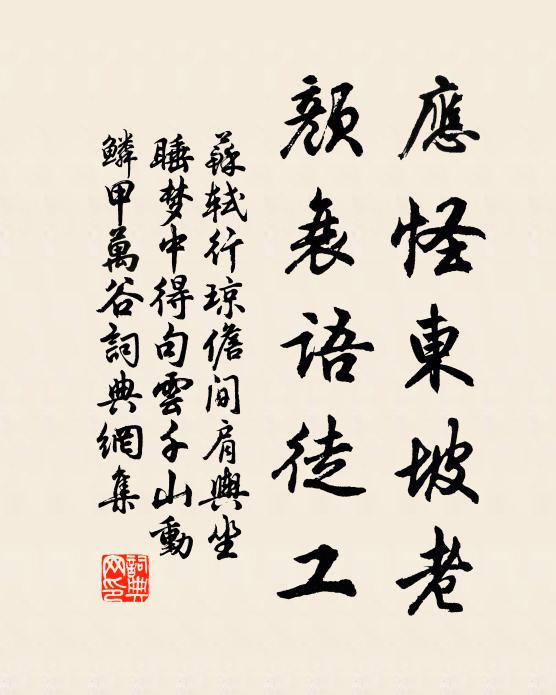 應怪東坡老
顏衰語徒工
蘇軾行琼儋间肩輿坐
睡梦中得句雲千山動
鱗甲萬谷詞典網集
詞典
网印